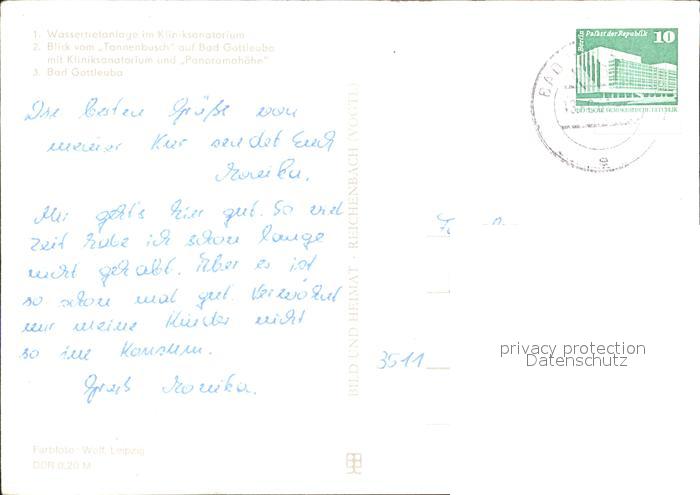 1. Wassertretanlage im Kliniksanatorium
2. Blick vom „Tannenbusch" auf Bad Gottleuba
mit Kliniksanatorium und „Panoramahöhe"
3. Bad Gottleuba
Die besten Grüße von
meiner Kur sendet Euch
Monika.
Mir geht's hier gut. So viel
Zeit habe ich schon lange
nicht gehabt. Aber es ist
so schon mal gut. Verwöhnt
mir meine Kinder nicht
so im Konsum.
Gruß Monika.
Farbfoto: Wolf, Leipzig
DDR 0,20 M
BILD UND HEIMAT · REICHENBACH (VOGTL)
Berlin Palast der Republik
10
DEUTSCHE DEMOKRATISCHE REPUBLIK
BAD
3511
privacy protection
Datenschutz